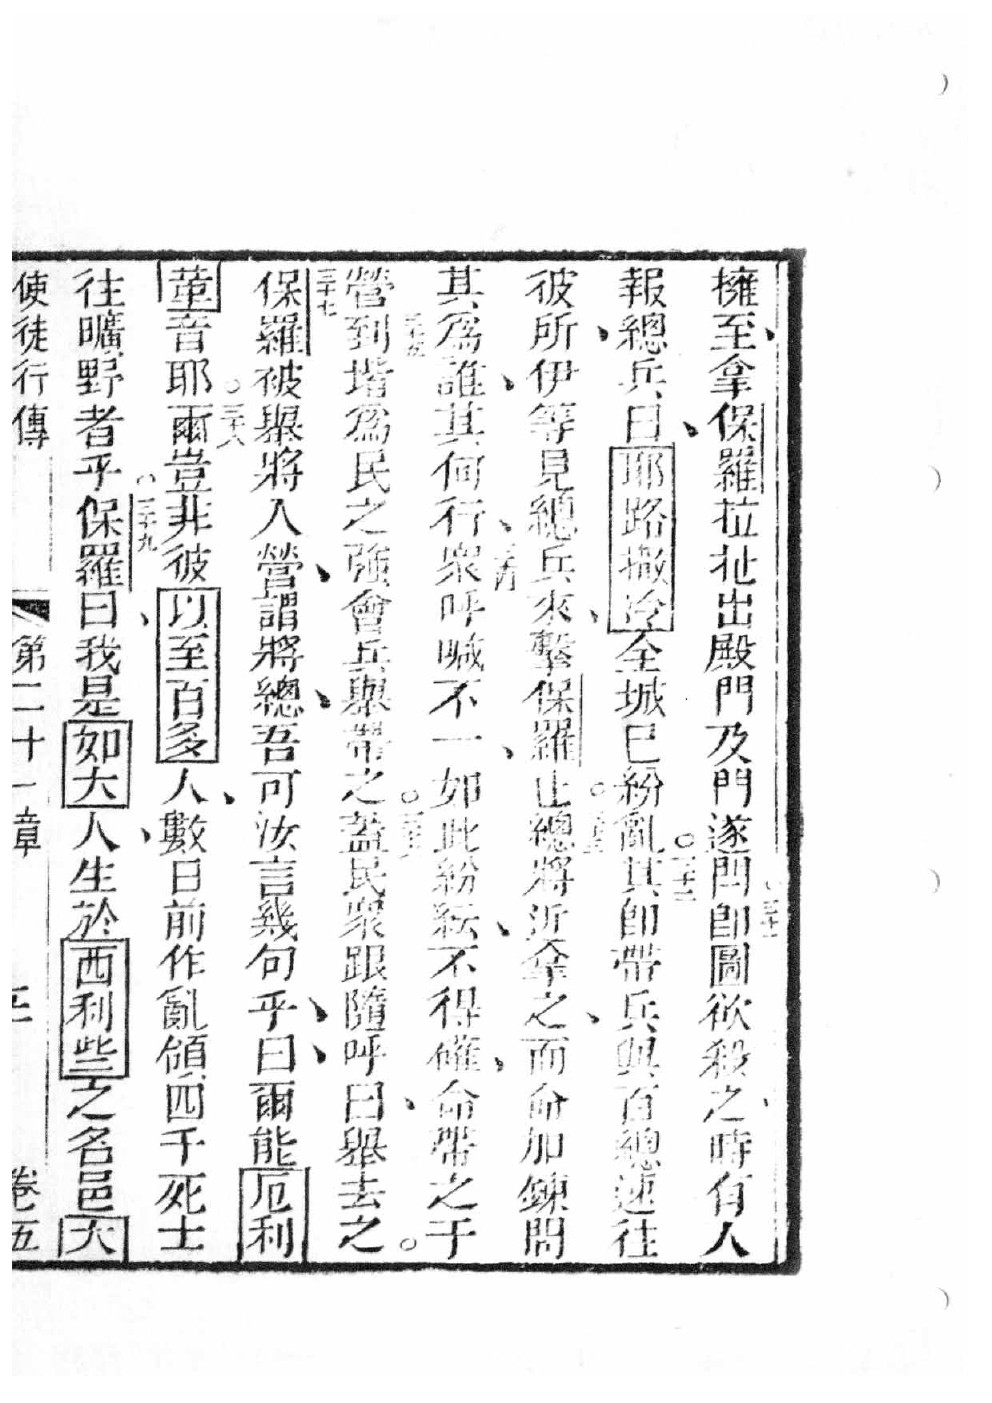 擁至拿保羅拉扯出殿門及門遂閂卽圖欲殺之時有人
報總兵曰耶路撒冷全城已紛亂其卽帶兵與百總速往
彼所伊等見總兵來擊保羅止總將近拿之而命加鍊問
其爲誰其何行衆呼喊不一如此紛紜不得確命帶之于
營到堦爲民之強會兵舉帶之蓋民衆跟隨呼曰舉去之
保羅被舉將入營謂將總吾可汝言幾句乎曰爾能厄利
葷音耶爾豈非彼以至百多人數日前作亂領四千死士
往曠野者乎保羅曰我是如大人生於西利些之名邑大
使徒行傳 第二十一章 卷五